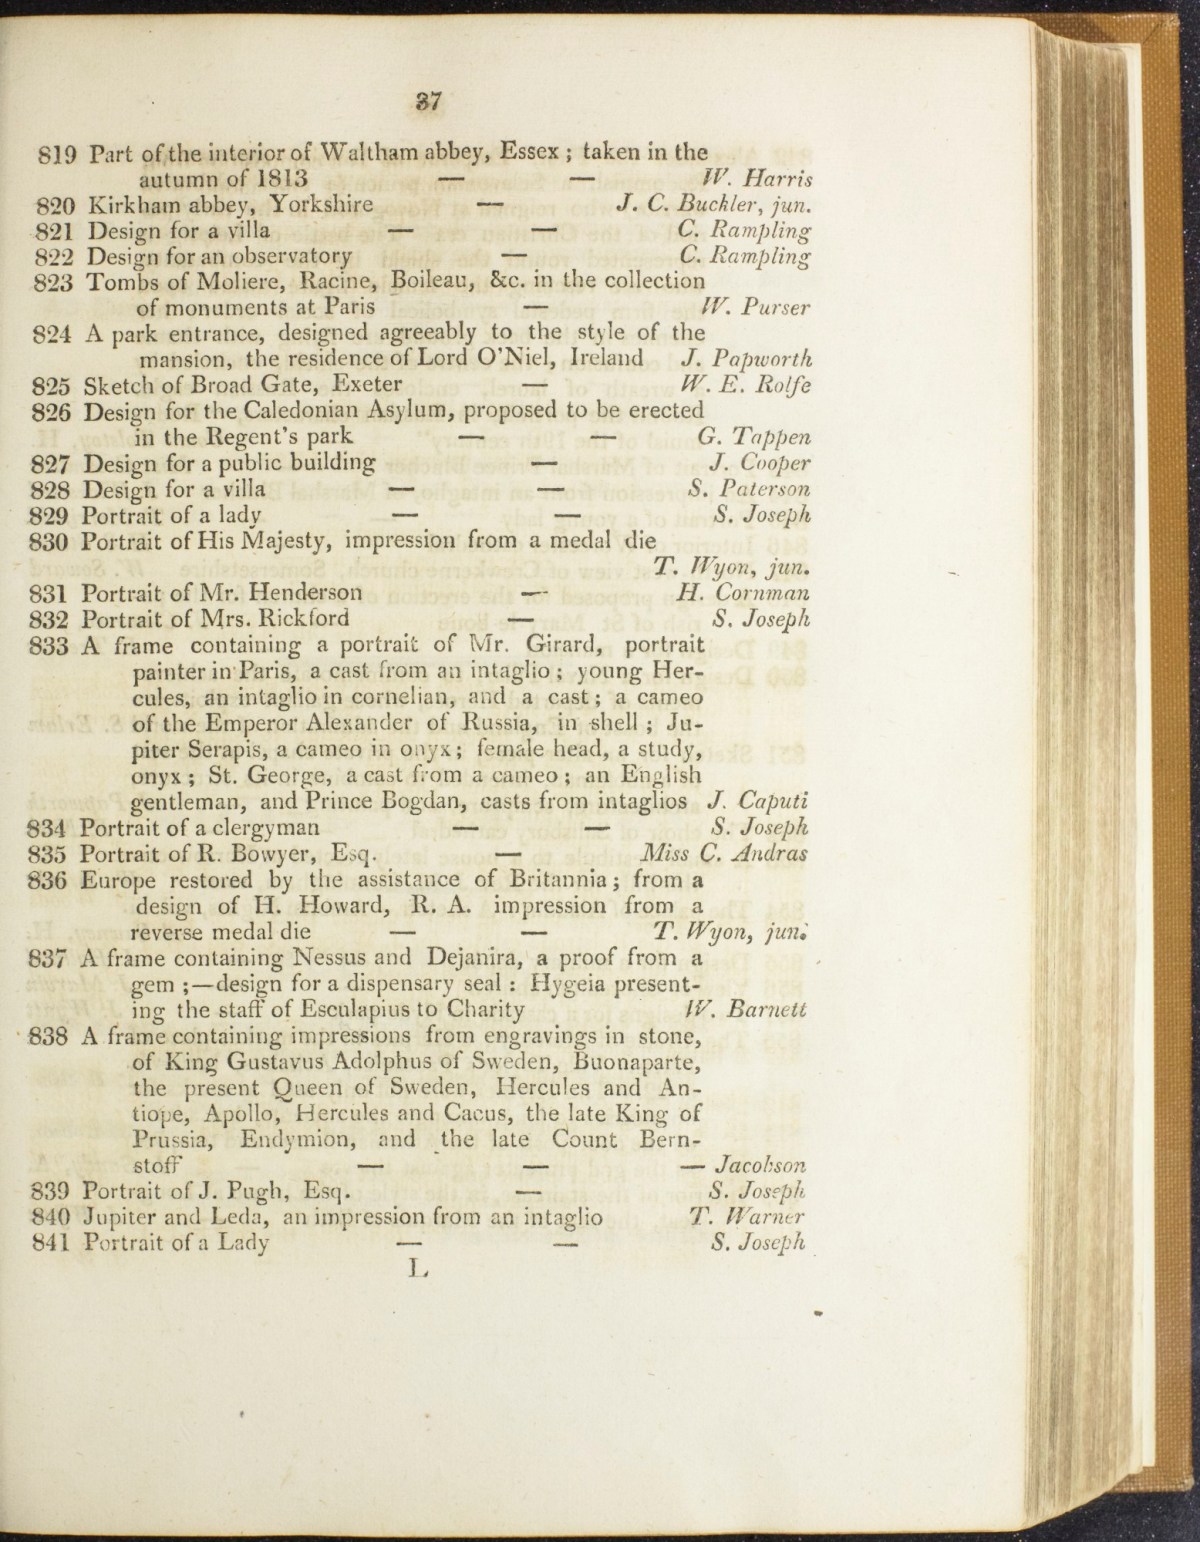 37
819 Part of the interior of Waltham abbey, Essex ; taken in the
autumn of 1813 — — W. Harris
820 Kirkham abbey, Yorkshire — J. C. Buckler, jun.
821 Design for a villa — — C. Rampling
822 Design for an observatory — C. Rampling
823 Tombs of Moliere, Racine, Boileau, &c. in the collection
of monuments at Paris — W. Purser
824 A park entrance, designed agreeably to the style of the
mansion, the residence of Lord O'Niel, Ireland J. Papworth
825 Sketch of Broad Gate, Exeter — W. E. Rolfe
826 Design for the Caledonian Asylum, proposed to be erected
in the Regent's park — — G. Tappen
827 Design for a public building — J. Cooper
828 Design for a villa — — S. Paterson
829 Portrait of a lady — — S. Joseph
830 Portrait of His Majesty, impression from a medal die
T. Wyon, jun.
831 Portrait of Mr. Henderson — H. Cornman
832 Portrait of Mrs. Rickford — S. Joseph
833 A frame containing a portrait of Mr. Girard, portrait
painter in Paris, a cast from an intaglio ; young Her-
cules, an intaglio in cornelian, and a cast ; a cameo
of the Emperor Alexander of Russia, in shell ; Ju-
piter Serapis, a cameo in onyx ; female head, a study,
onyx ; St. George, a cast from a cameo ; an English
gentleman, and Prince Bogdan, casts from intaglios J. Caputi
834 Portrait of a clergyman — — S. Joseph
835 Portrait of R. Bowyer, Esq. — Miss C. Andras
836 Europe restored by the assistance of Britannia ; from a
design of H. Howard, R. A. impression from a
reverse medal die — — T. Wyon, jun.
837 A frame containing Nessus and Dejanira, a proof from a
gem ;—design for a dispensary seal : Hygeia present-
ing the staff of Esculapius to Charity W. Barnett
838 A frame containing impressions from engravings in stone,
of King Gustavus Adolphus of Sweden, Buonaparte,
the present Queen of Sweden, Hercules and An-
tiope, Apollo, Hercules and Cacus, the late King of
Prussia, Endymion, and the late Count Bern-
stoff — — — Jacobson
839 Portrait of J. Pugh, Esq. — S. Joseph
840 Jupiter and Leda, an impression from an intaglio T. Warner
841 Portrait of a Lady — — S. Joseph
L